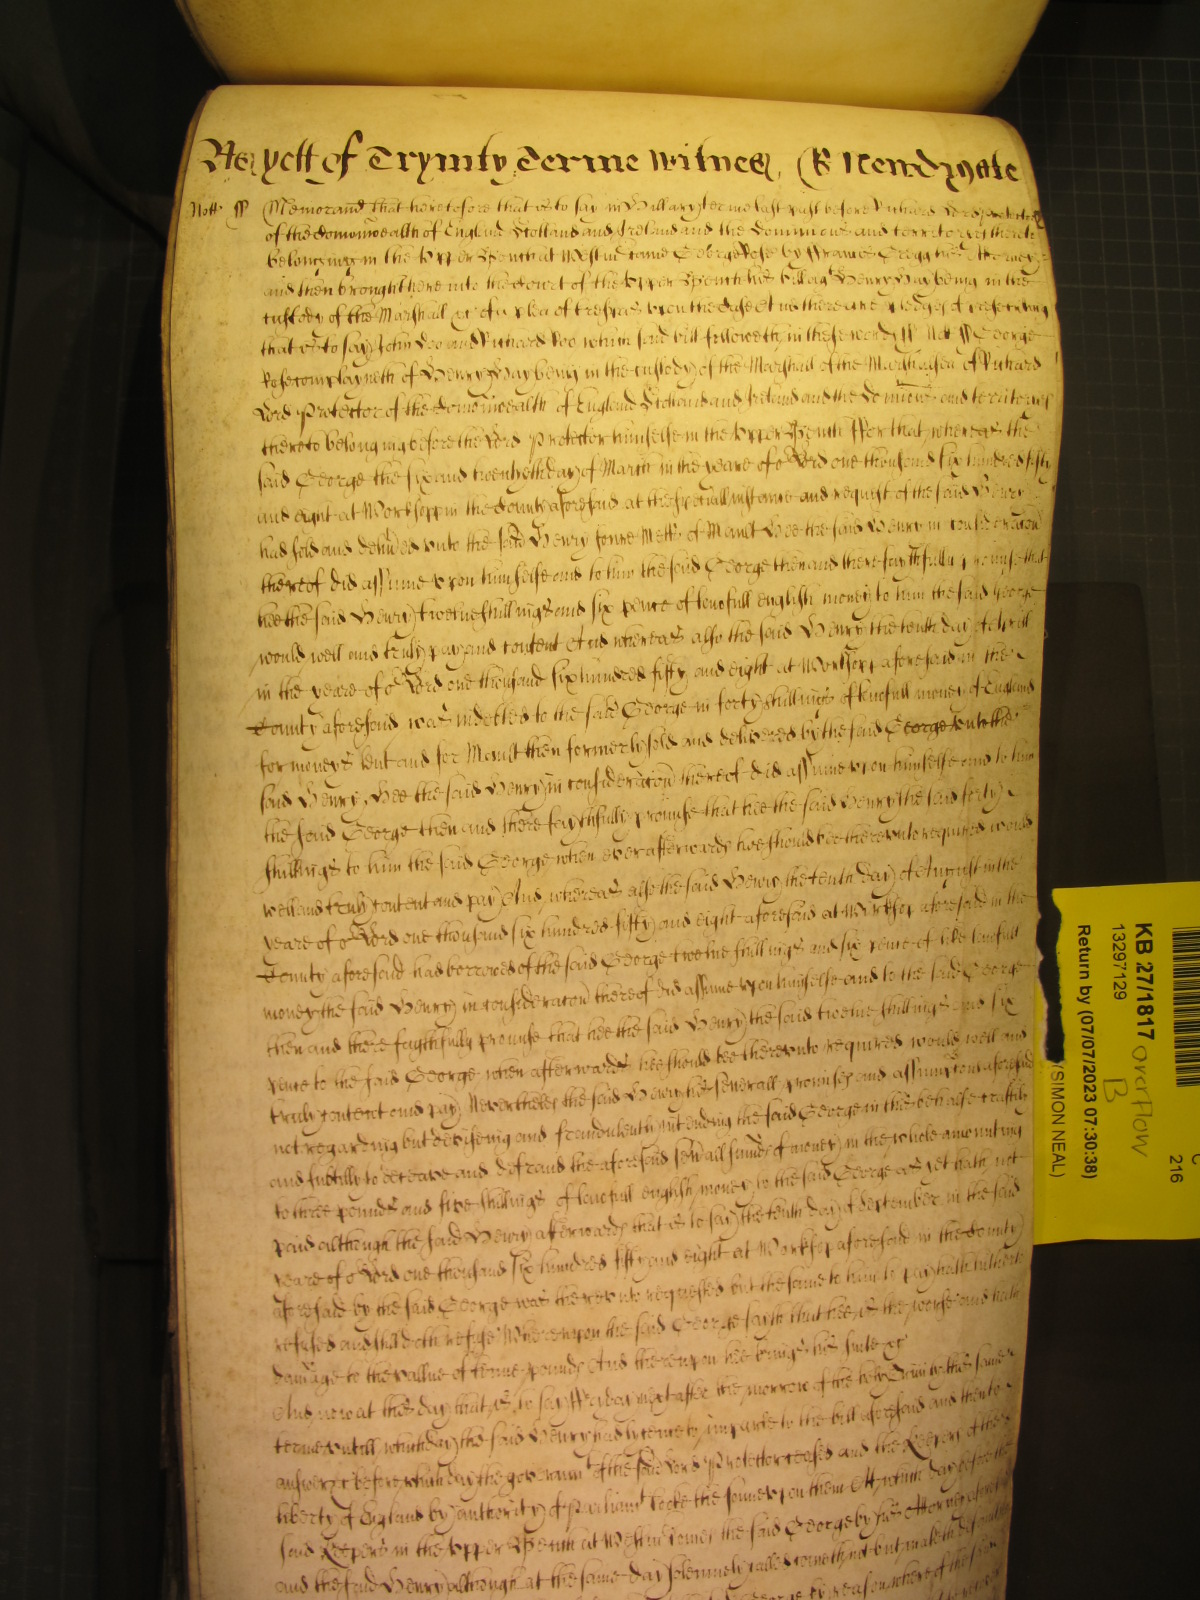 As yett of Trynity Terme Witnes, R Newdygate
Nott ss Memorand That heretofore that is to say in Hillary terme last past before Richard Lord Protector
of the Comonwealth of England Scotland and Ireland and the Dominions and territoryes thereto
belonginge in the Upper Bench at Westm came George Rose by Francis Cregg his Attorney
and then brought here into the Court of the Upper Bench his bill ag Henry Hay being in the
custody of the Marshall &c of a plea of trespas upon the Case And there are pledges of prosecuting
that is to say John Doo and Richard Roo which said bill followeth in these words ss Nott ss George
Rose complayneth of Henry Hay being in the custody of the Marshall of the Marshalsea of Richard
Lord Protector of the Comonwealth of England Scotland and Ireland and the Dominions and territoryes
thereto belonging before the Lord Protector himselfe in the Upper Bench ffor that whereas the
said George the six and twentieth day of March in the yeare of o Lord one thousand six hundred fifty
and eight at Worksopp in the County aforesaid at the speciall instance and request of the said Henry
had sold and delived unto the said Henry fowre Metts of Mault Hee the said Henry in consideracon
thereof did assume upon himselfe and to him the said George then and there faythfully promise that
hee the said Henry twelve shillings and six pence of lawfull english money to him the said George
would well and truly pay and content And whereas also the said Henry the tenth day of Aprill
in the yeare of o Lord one thousand six hundred fifty and eight at Worksopp aforesaid in the
County aforesaid was indebted to the said George in forty shillings of lawfull money of England
for moneys lent and for Mault then formerly sold and delivered by the said George unto the
said Henry, Hee the said Henry in consideracon thereof did assume upon himselfe and to him
the said George then and there faythfully promise that hee the said Henry the said forty
shillings to him the said George when ever afterwards hee should bee thereunto required would
well and truly content and pay And whereas also the said Henry the tenth day of August in the
yeare of o Lord one thousand six hundred fifty and eight aforesaid at Worksop aforesaid in the
County aforesaid had borrowed of the said George twelve shillings and six pence of like lawfull
money the said Henry in consideracon thereof did assume upon himselfe and to the said George
then and there faythfully promise that hee the said Henry the said twelve shillings and six
pence to the said George when afterwards hee should bee thereunto required would well and
truly content and pay Neverthelesse the said Henry his severall promises and assumpcons aforesaid
not regarding but devising and fraudulently intending the said George in this behalfe craftily
and subtilly to deceave and defraud the aforesaid sevall summes of money in the whole amounting
to three pounds and five shillings of lawfull english money to the said George as yet hath not
paid although the said Henry afterwards that is to say the tenth day of September in the said
yeare of o Lord one thousand six hundred fifty and eight at Worksop aforesaid in the County
aforesaid by the said George was thereunto requested but the same to him to pay hath hitherto
refused and still doth refuse Whereupon the said George sayth that hee is the worse and hath
damage to the vallue of tenne pounds And thereupon hee brings his suite &c
And now at this day that is to say ffryday next after the morrow of the holy Trinity this same
terme untill which day the said Henry had lycence to imparle to the bill aforesaid and then to
answer &c before which day the governmt of the said Lord Protector ceased and the Keepers of the
liberty of England by authority of Parliamt tooke the same upon them Att which day before the
said Keepers in the Upper Bench at Westm comes the said George by his Attorney aforesaid
and the said Henry although at the same day solemnely called cometh not but maketh default
KB 27/1817 overflow
B
13297129
Return by (07/07/2023 07:30:38)
(SIMON NEAL)
216